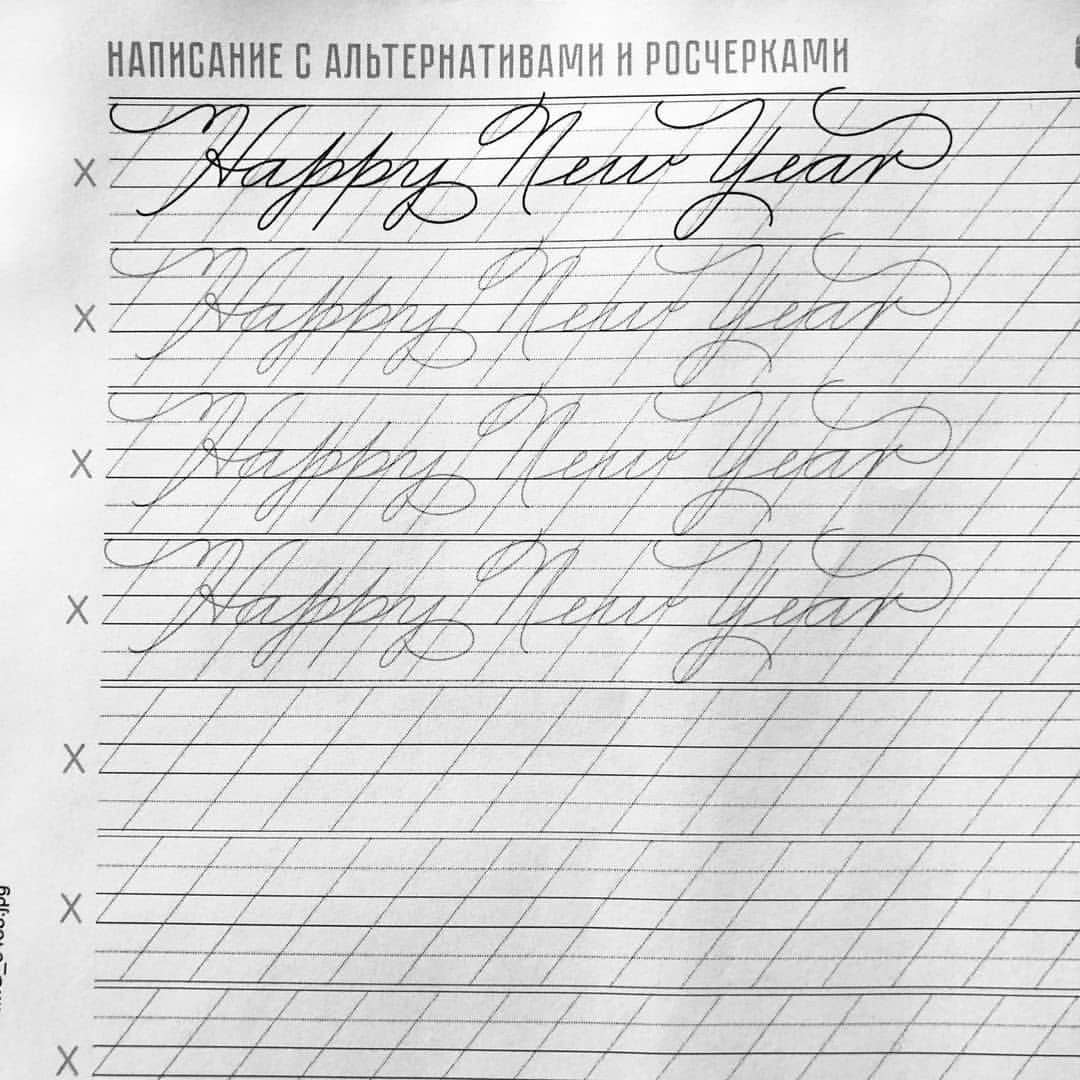 НАПИСАНИЕ С АЛЬТЕРНАТИВАМИ И РОСЧЕРКАМИ
X Happy New Year
X Happy New Year
X Happy New Year
X Happy New Year
X
X
X